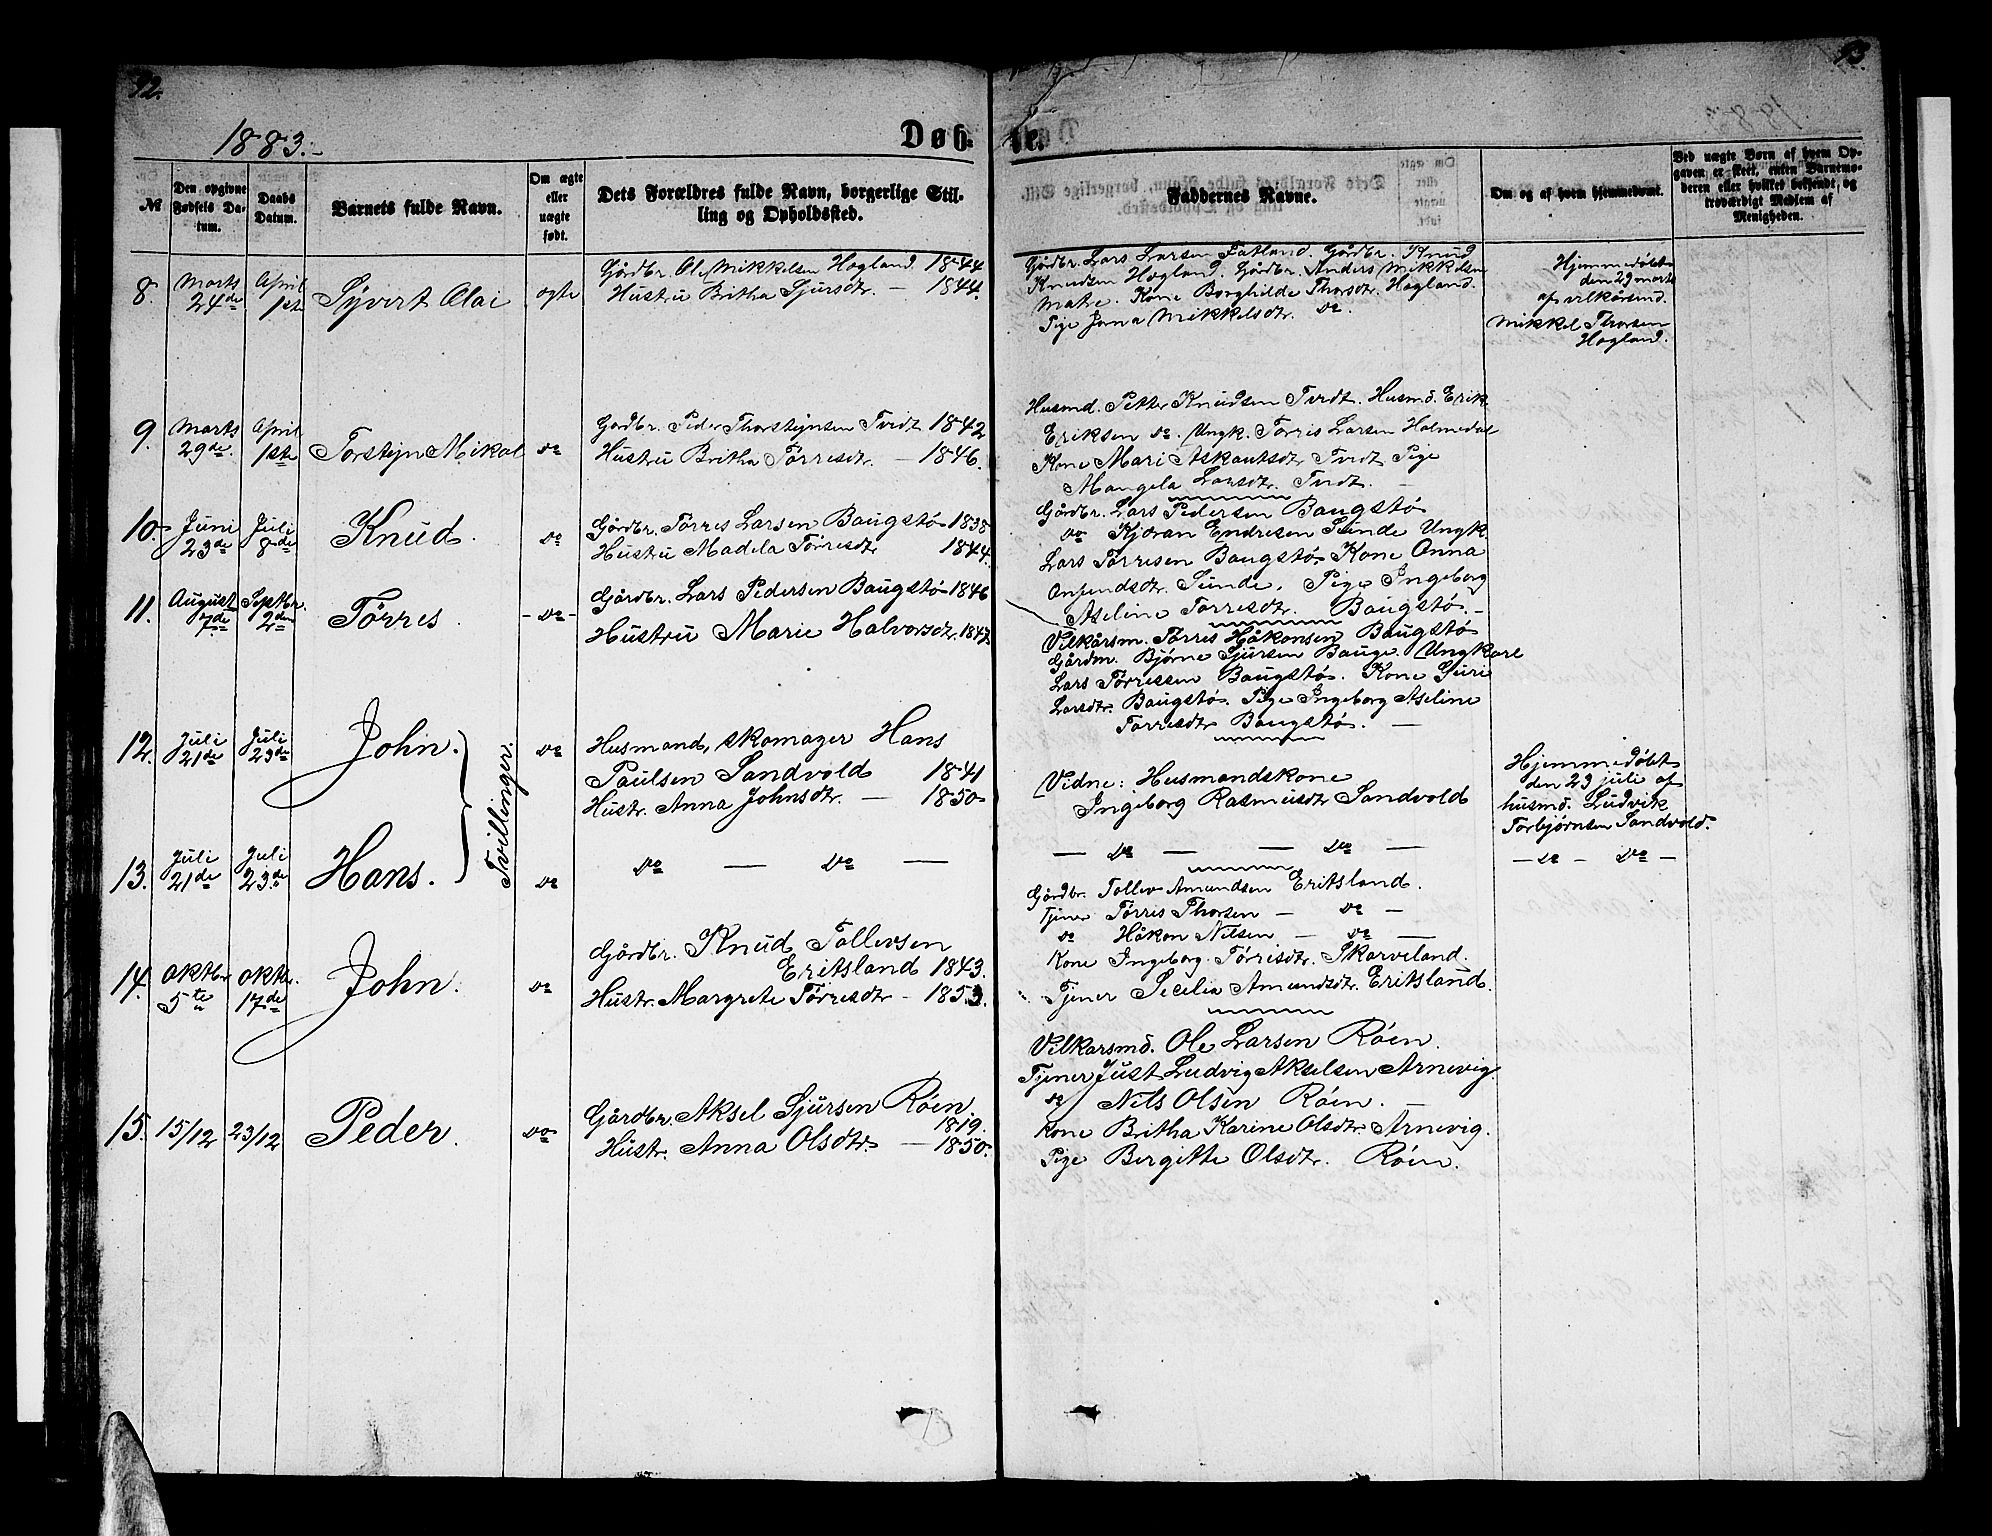 92.
93.
1883.-
Døb-
te.
№
Den opgivne Fødsels Da-
tum.
Daabs Datum.
Barnets fulde Navn.
Om ægte eller uægte født.
Dets Forældres fulde Navn, borgerlige Stil-
ling og Opholdssted.
Faddernes Navne.
Om og af hvem hjemmedøbt.
Ved uægte Børn af hvem Op-
gaven er skeet, enten Barnemo-
deren eller hvilket bekjendt, og
troværdigt Medlem af
Menigheden.
8. Marts 24de April 1ste Syvert Olai ægte
Gårdbr. Ole Mikkelsen Hogland 1844
Hustru Britha Sjursdtr. — 1844.
Gårdbr. Lars Larsen Fatland. Gårdbr. Knud
Knudsen Hogland. Gårdbr. Anders Mikkelsen
Matre. Kone Borghilde Thorsdtr. Hogland.
Pige Jorna Mikkelsdtr. do.
Hjemmedøbt
den 29 marts
af vilkårsmd.
Mikkel Thorsen
Hogland.
9. Marts 29de April 1ste Torstejn Mikal do
Gårdbr. Peder Thorstejnsen Tvidt 1842
Hustru Britha Tørresdtr. — 1846.
Husmd. Petter Knudsen Tvidt. Husmd. Erik
Eriksen do. Ungk. Torris Larsen Holmedal
Kone Mari Askoutsdtr Tvidt Pige
Mangela Larsdtr. Tvidt. —
10. Juni 23de Juli 8de Knud. do
Gårdbr. Tørris Larsen Baugstø 1838
Hustru Madela Tørresdtr 1844.
Gårdbr. Lars Pedersen Baugstø
do Kjøran Endresen Sunde Ungk.
Lars Tørrisen Baugstø. Kone Anna
Onfundsdtr. Sunde. Pige Ingeborg
Aseline Tørresdtr. Baugstø.-
11. August 7de Septbr. 2den Tørres - do -
Gårdbr. Lars Pedersen Baugstø 1846
Hustru Marie Halvorsdtr. 1847.
Vilkårsm. Tørris Håkonsen Baugstø
Gårdm. Bjørne Sjursen Bauge. Ungkarl
Lars Tørressen Baugstø. Kone Guri
Larsdtr. Baugstø. Pige Ingeborg Aseline
Torresdtr Baugstø. —
12. Juli 21de Juli 23de John. do
Tvillinger.
Husmand, skomager Hans
Paulsen Sandvold 1841
Hustr. Anna Johnsdtr. — 1850
Vidne: Husmandskone
Ingeborg Rasmusdtr Sandvold
Hjemmedøbt
den 23 juli af
husmd. Ludvik
Torbjørnsen Sandvold.
13. Juli 21de Juli 23de Hans. do
do — do —
— do — — do —
— do — do —
14. Oktbr 5te Oktbr. 17de John. do
Gårdbr. Knud Tollevsen
Eritsland 1843.
Hustr. Margrete Tørresdtr — 1853.
Gårdbr. Tollev Amundsen Eritsland.
Tjener Tørris Thorsen — do —
do Håkon Nilsen — do —
Kone Ingeborg Tørrisdtr. Skarveland.
Tjener Secelia Amundsdtr. Eritsland.
15. 15/12 23/12 Peder. do
Gårdbr. Aksel Sjursen Røen.
1819.
Hustr. Anna Olsdtr. — 1850.
Vilkarsmd. Ole Larsen Røen.
Tjener Just Ludvig Akselsen Arnevig.
do Nils Olsen Røen. —
Kone Britha Karine Olsdtr. Arnevig.
Pige Bergitte Olsdtr. Røen.